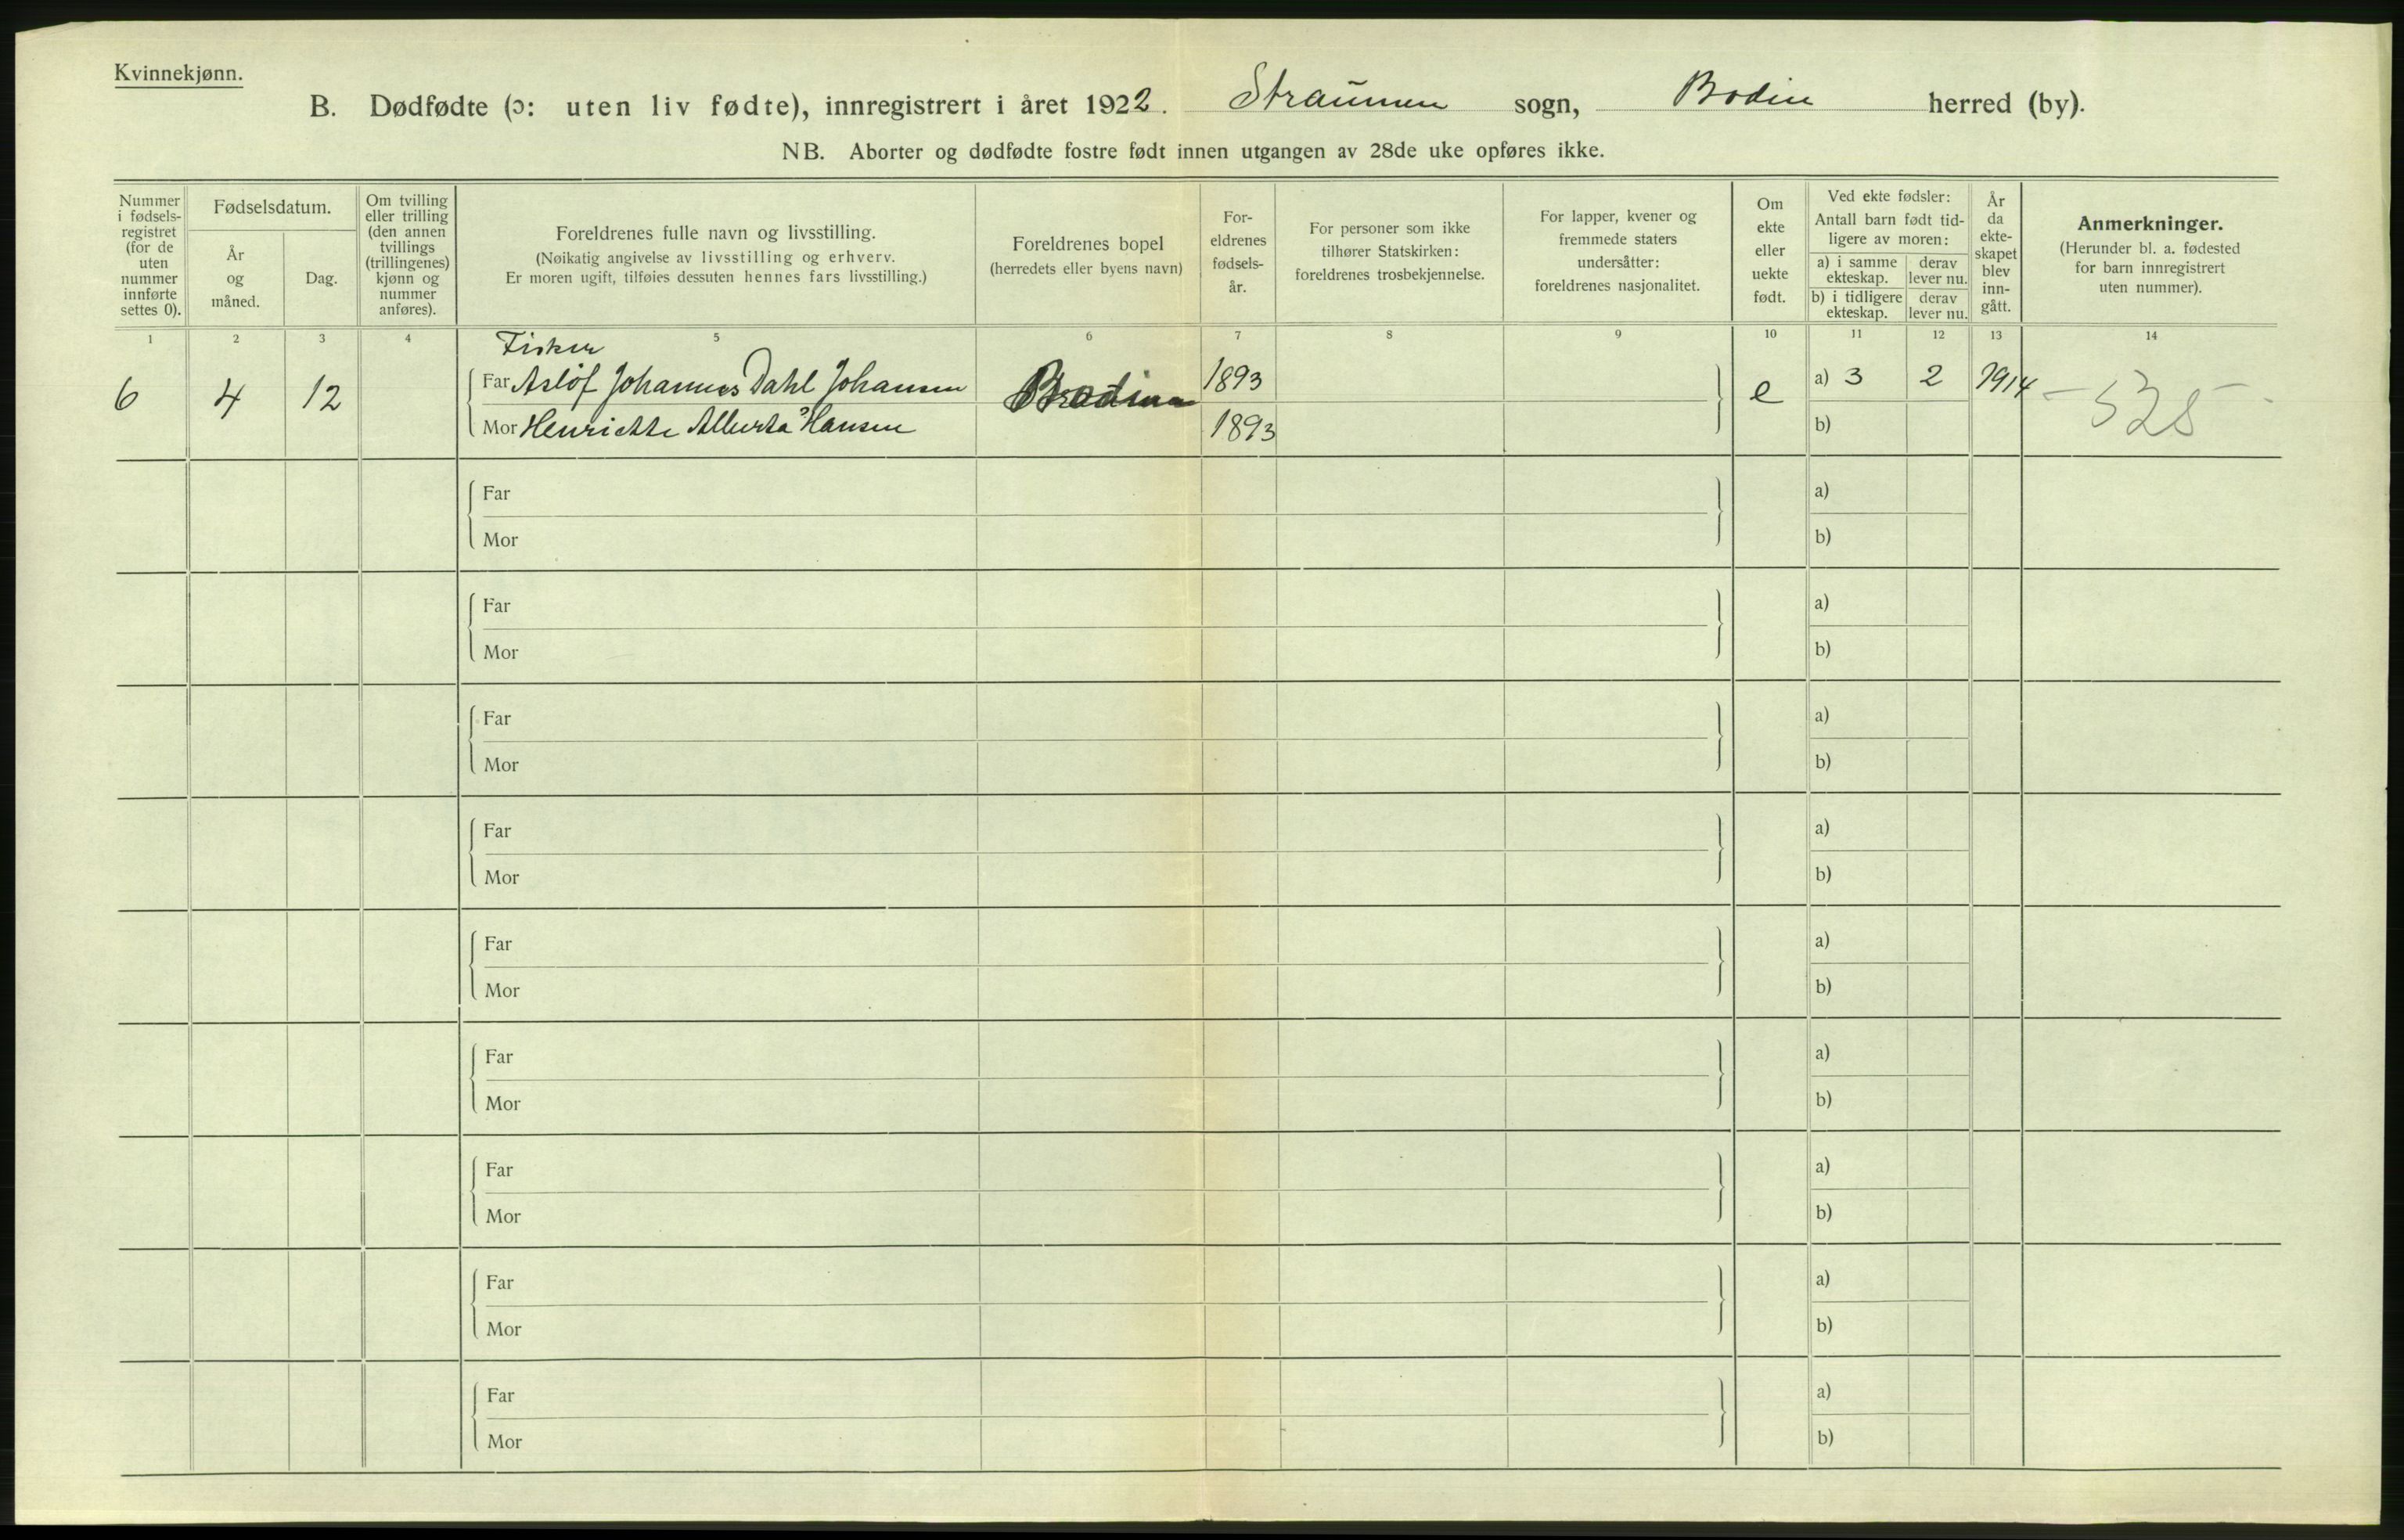 Kvinnekjønn.
B. Dødfødte (ɔ: uten liv fødte), innregistrert i året 1922. Straumen sogn, Bodin herred (by).
NB. Aborter og dødfødte fostre født innen utgangen av 28de uke opføres ikke.
Nummer
i fødsels-
registret
(for de
uten
nummer
innførte
settes 0).
Fødselsdatum.
År
og
måned.
Dag.
Om tvilling
eller trilling
(den annen
tvillings
(trillingenes)
kjønn og
nummer
anføres).
Foreldrenes fulle navn og livsstilling.
(Nøikatig angivelse av livsstilling og erhverv.
Er moren ugift, tilføies dessuten hennes fars livsstilling.)
Foreldrenes bopel
(herredets eller byens navn)
For-
eldrenes
fødsels-
år.
For personer som ikke
tilhører Statskirken:
foreldrenes trosbekjennelse.
For lapper, kvener og
fremmede staters
undersåtter:
foreldrenes nasjonalitet.
Om
ekte
eller
uekte
født.
Ved ekte fødsler:
Antall barn født tid-
ligere av moren:
a) i samme
ekteskap.
derav
lever nu.
b) i tidligere
ekteskap.
derav
lever nu.
År
da
ekte-
skapet
blev
inn-
gått.
Anmerkninger.
(Herunder bl. a. fødested
for barn innregistrert
uten nummer).
1 2 3 4 5 6 7 8 9 10 11 12 13 14
Fisker
6 4 12 Far Asløf Johannes Dahl Johansen Bodin 1893 e a) 3 2 1914 - 325 -
Mor Henriette Alberta Hansen 1893 b)
Far a)
Mor b)
Far a)
Mor b)
Far a)
Mor b)
Far a)
Mor b)
Far a)
Mor b)
Far a)
Mor b)
Far a)
Mor b)
Far a)
Mor b)
Far a)
Mor b)